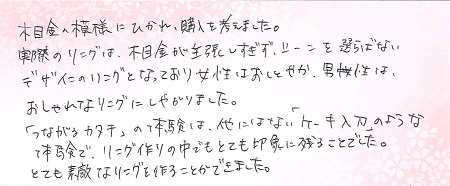 木目金の模様にひかれ、購入を考えました。
実際のリングは、木目金が主張しすぎず、シーンを選らばない
デザインのリングとなっており女性はおしとやか、男性は、
おしゃれなリングにしあがりました。
「つながるカタチ」の体験は、他にはない「ケーキ入刀」のような
体験で、リング作りの中でもとても印象に残ることでした。
とても素敵なリングを作ることができました。